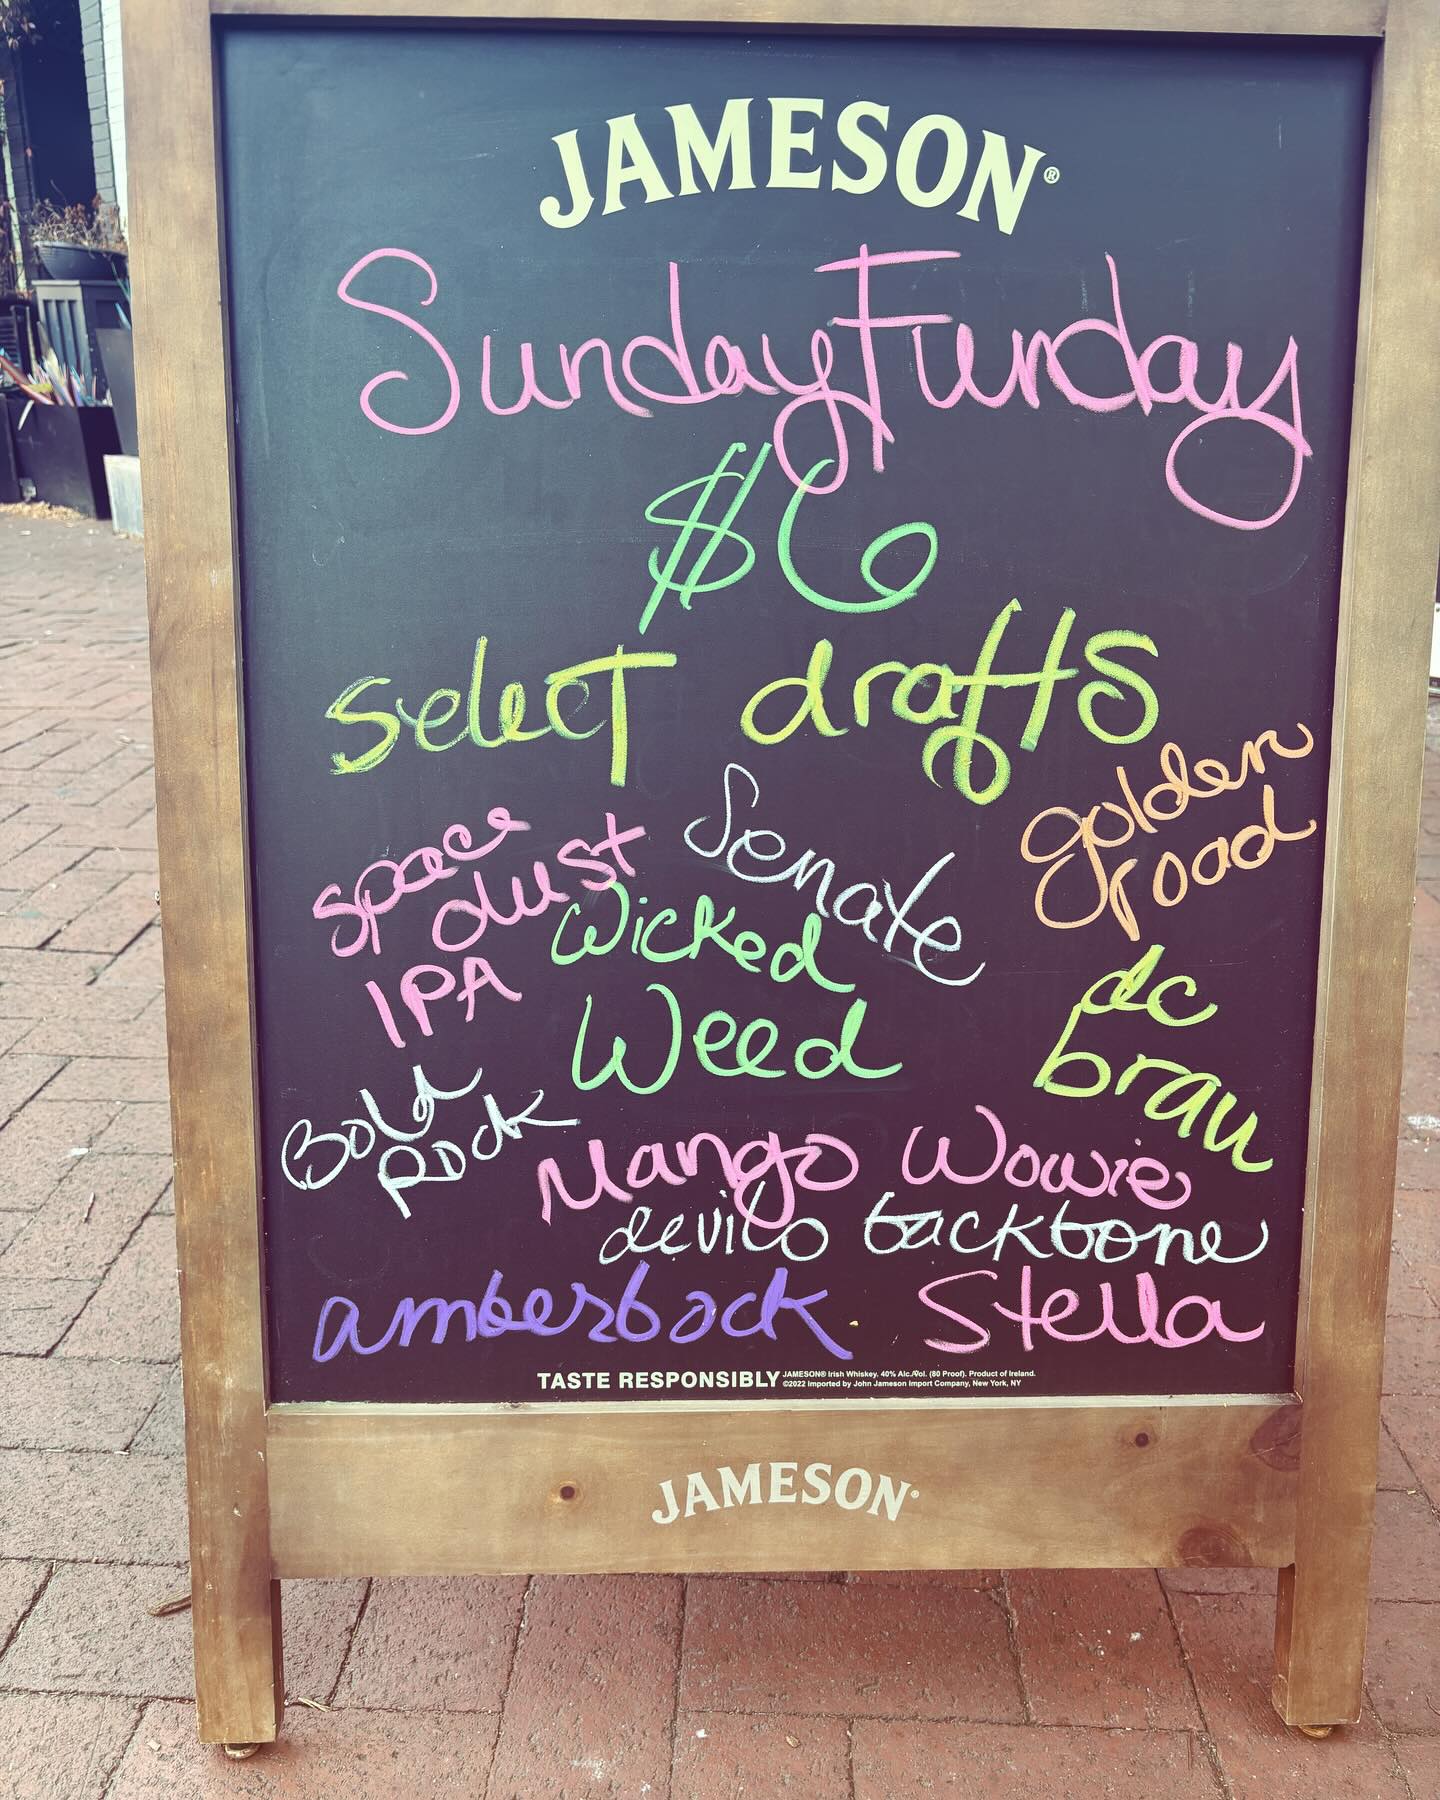 JAMESON®
Sunday Funday
$6
select drafts
space dust IPA
Senate
golden road
Wicked Weed
dc brau
Bold Rock
Mango Wowie
devils backbone
amberbock
Stella
TASTE RESPONSIBLY JAMESON® Irish Whiskey. 40% Alc./Vol. (80 Proof). Product of Ireland.
©2022 Imported by John Jameson Import Company, New York, NY
JAMESON®